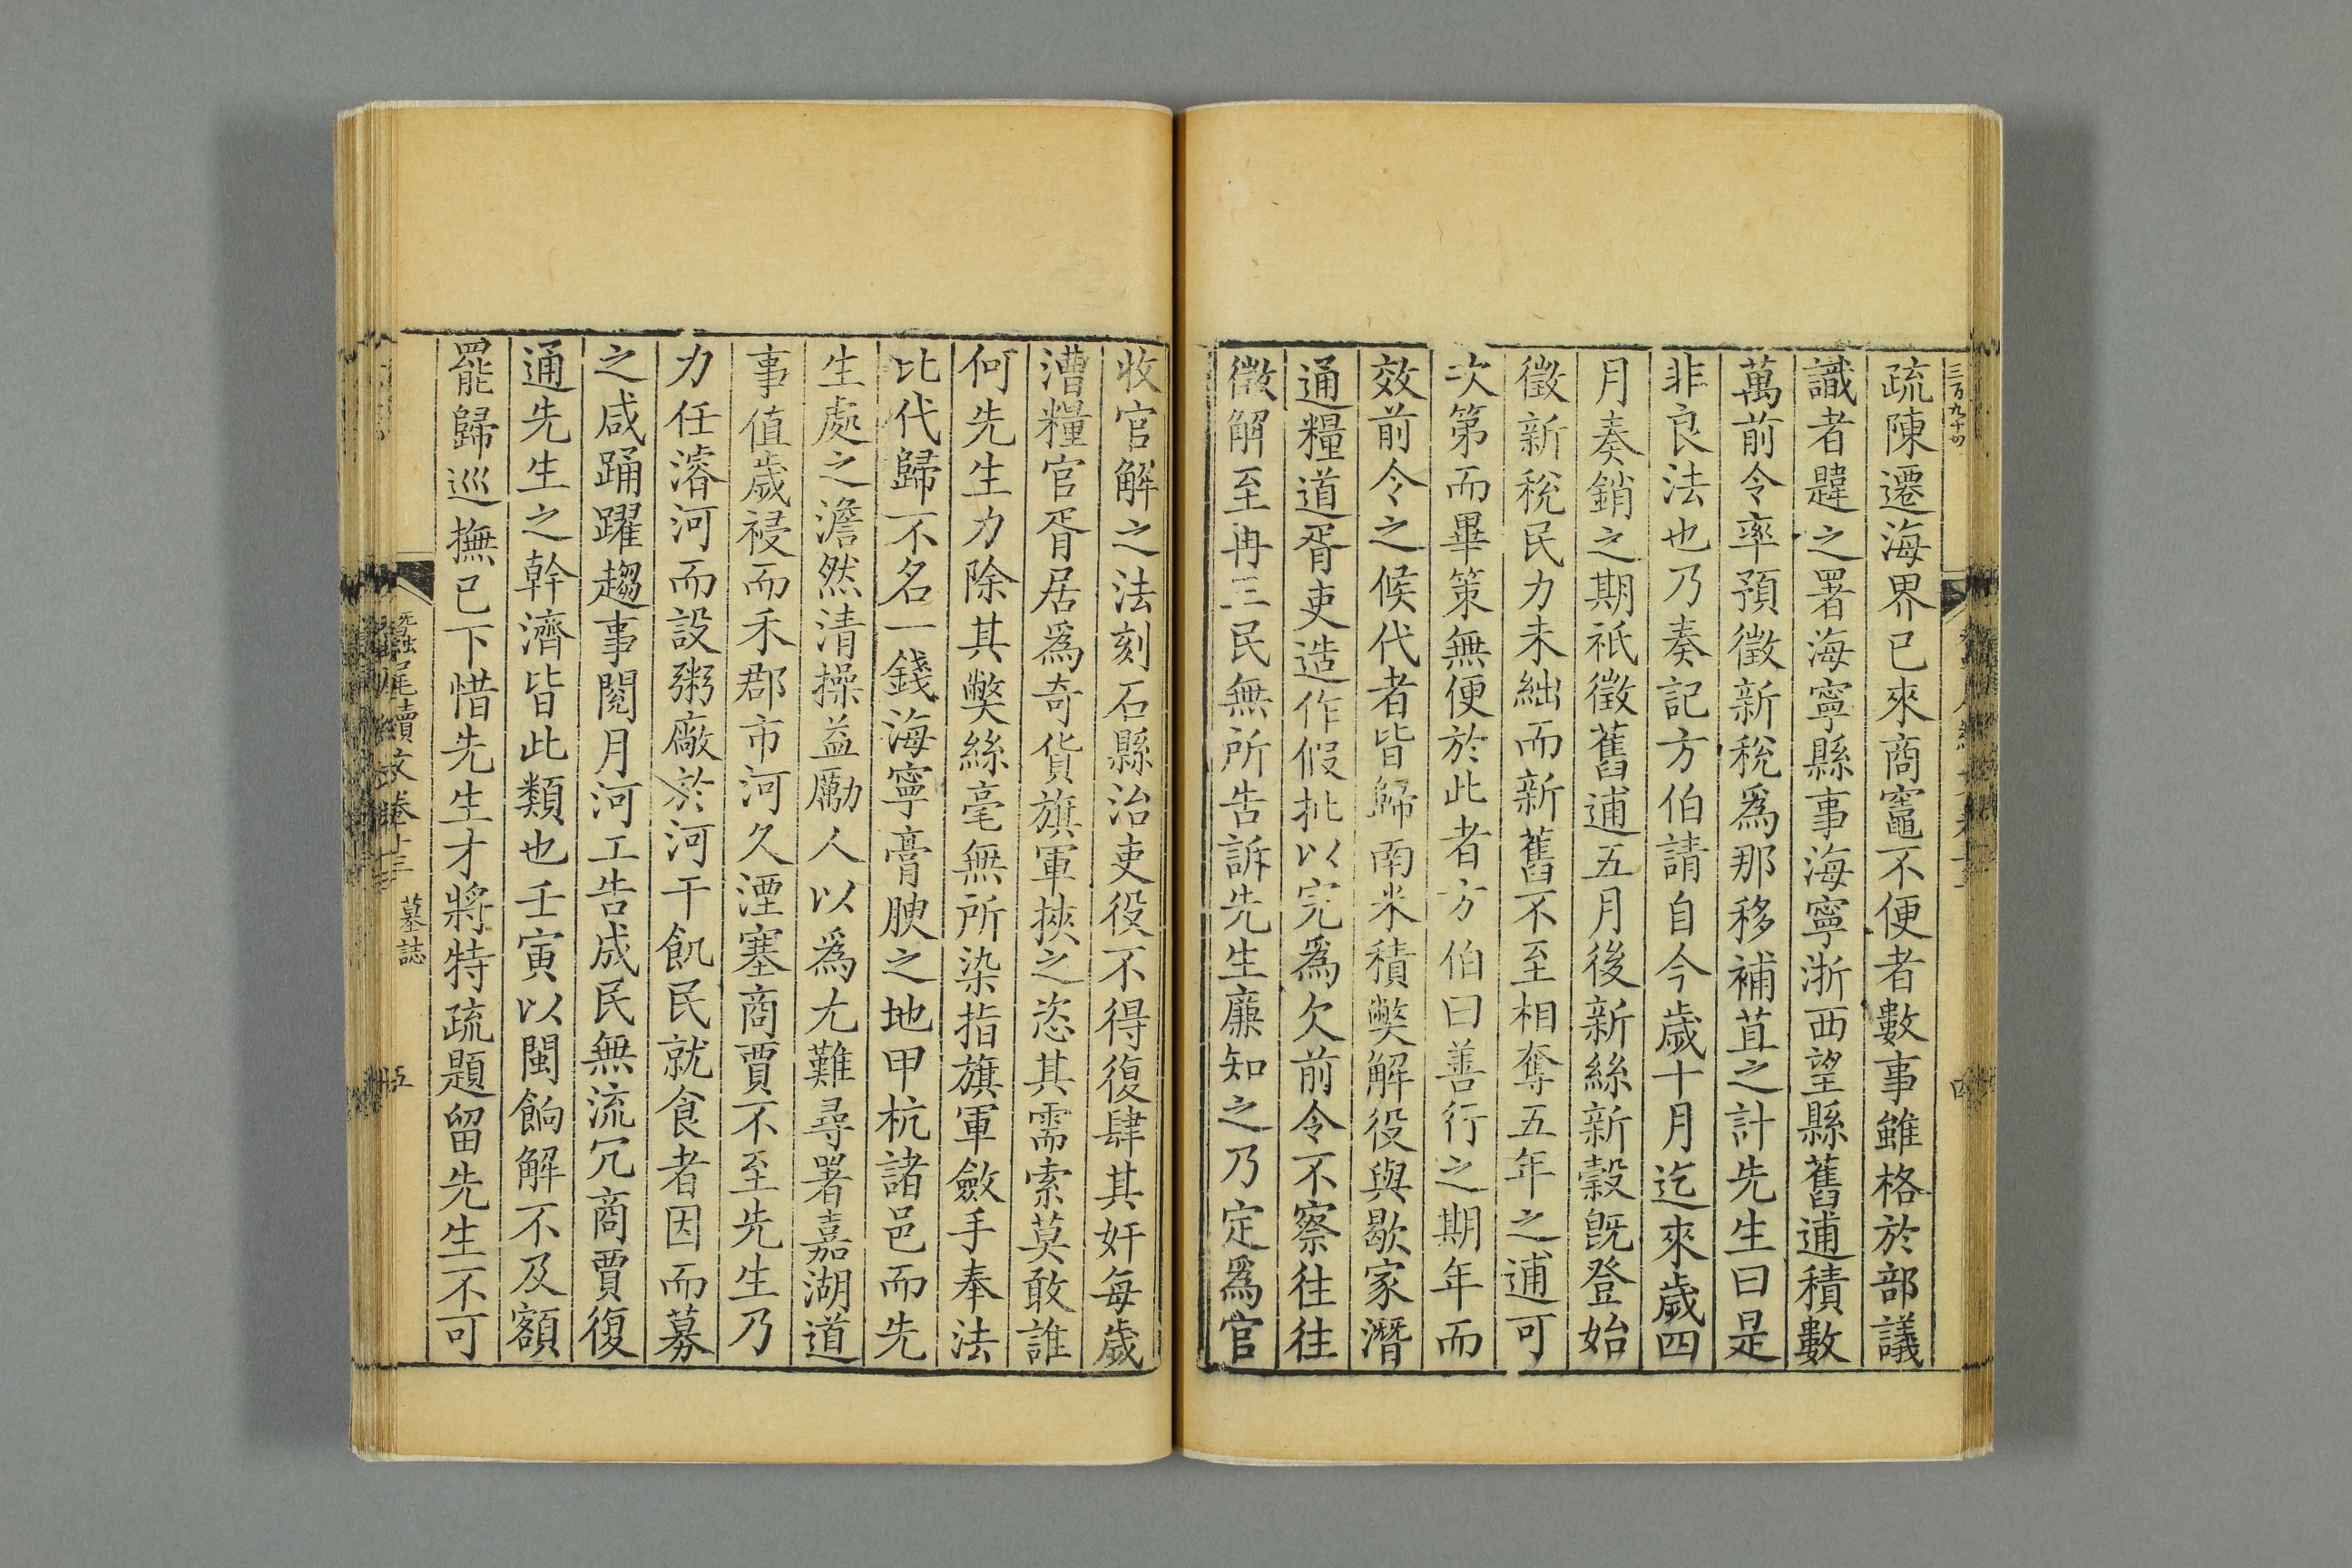 疏陳遷海界已來商竈不便者數事雖格於部議
識者韙之署海寧縣事海寧浙西望縣舊逋積數
萬前令率預徵新稅爲那移補苴之計先生曰是
非良法也乃奏記方伯請自今歲十月迄來歲四
月奏銷之期祇徵舊逋五月後新絲新穀旣登始
徵新稅民力未絀而新舊不至相奪五年之逋可
次第而畢策無便於此者方伯曰善行之期年而
效前令之候代者皆歸南米積獘解役與歇家潛
通糧道胥吏造作假批以完爲欠前令不察往往
徵解至冉三民無所告訴先生廉知之乃定爲官
收官解之法刻石縣治吏役不得復肆其奸每歲
漕糧官胥居爲奇貨旗軍挾之恣其需索莫敢誰
何先生力除其獘絲毫無所染指旗軍斂手奉法
比代歸不名一錢海寧膏腴之地甲杭諸邑而先
生處之澹然清操益勵人以爲尤難尋署嘉湖道
事值歲祲而禾郡市河久湮塞商賈不至先生乃
力任濬河而設粥廠於河干飢民就食者因而募
之咸踊躍趨事閱月河工告成民無流冗商賈復
通先生之幹濟皆此類也壬寅以閩餉解不及額
罷歸巡撫已下惜先生才將特疏題留先生不可
蠶尾續文卷十三 墓誌 五